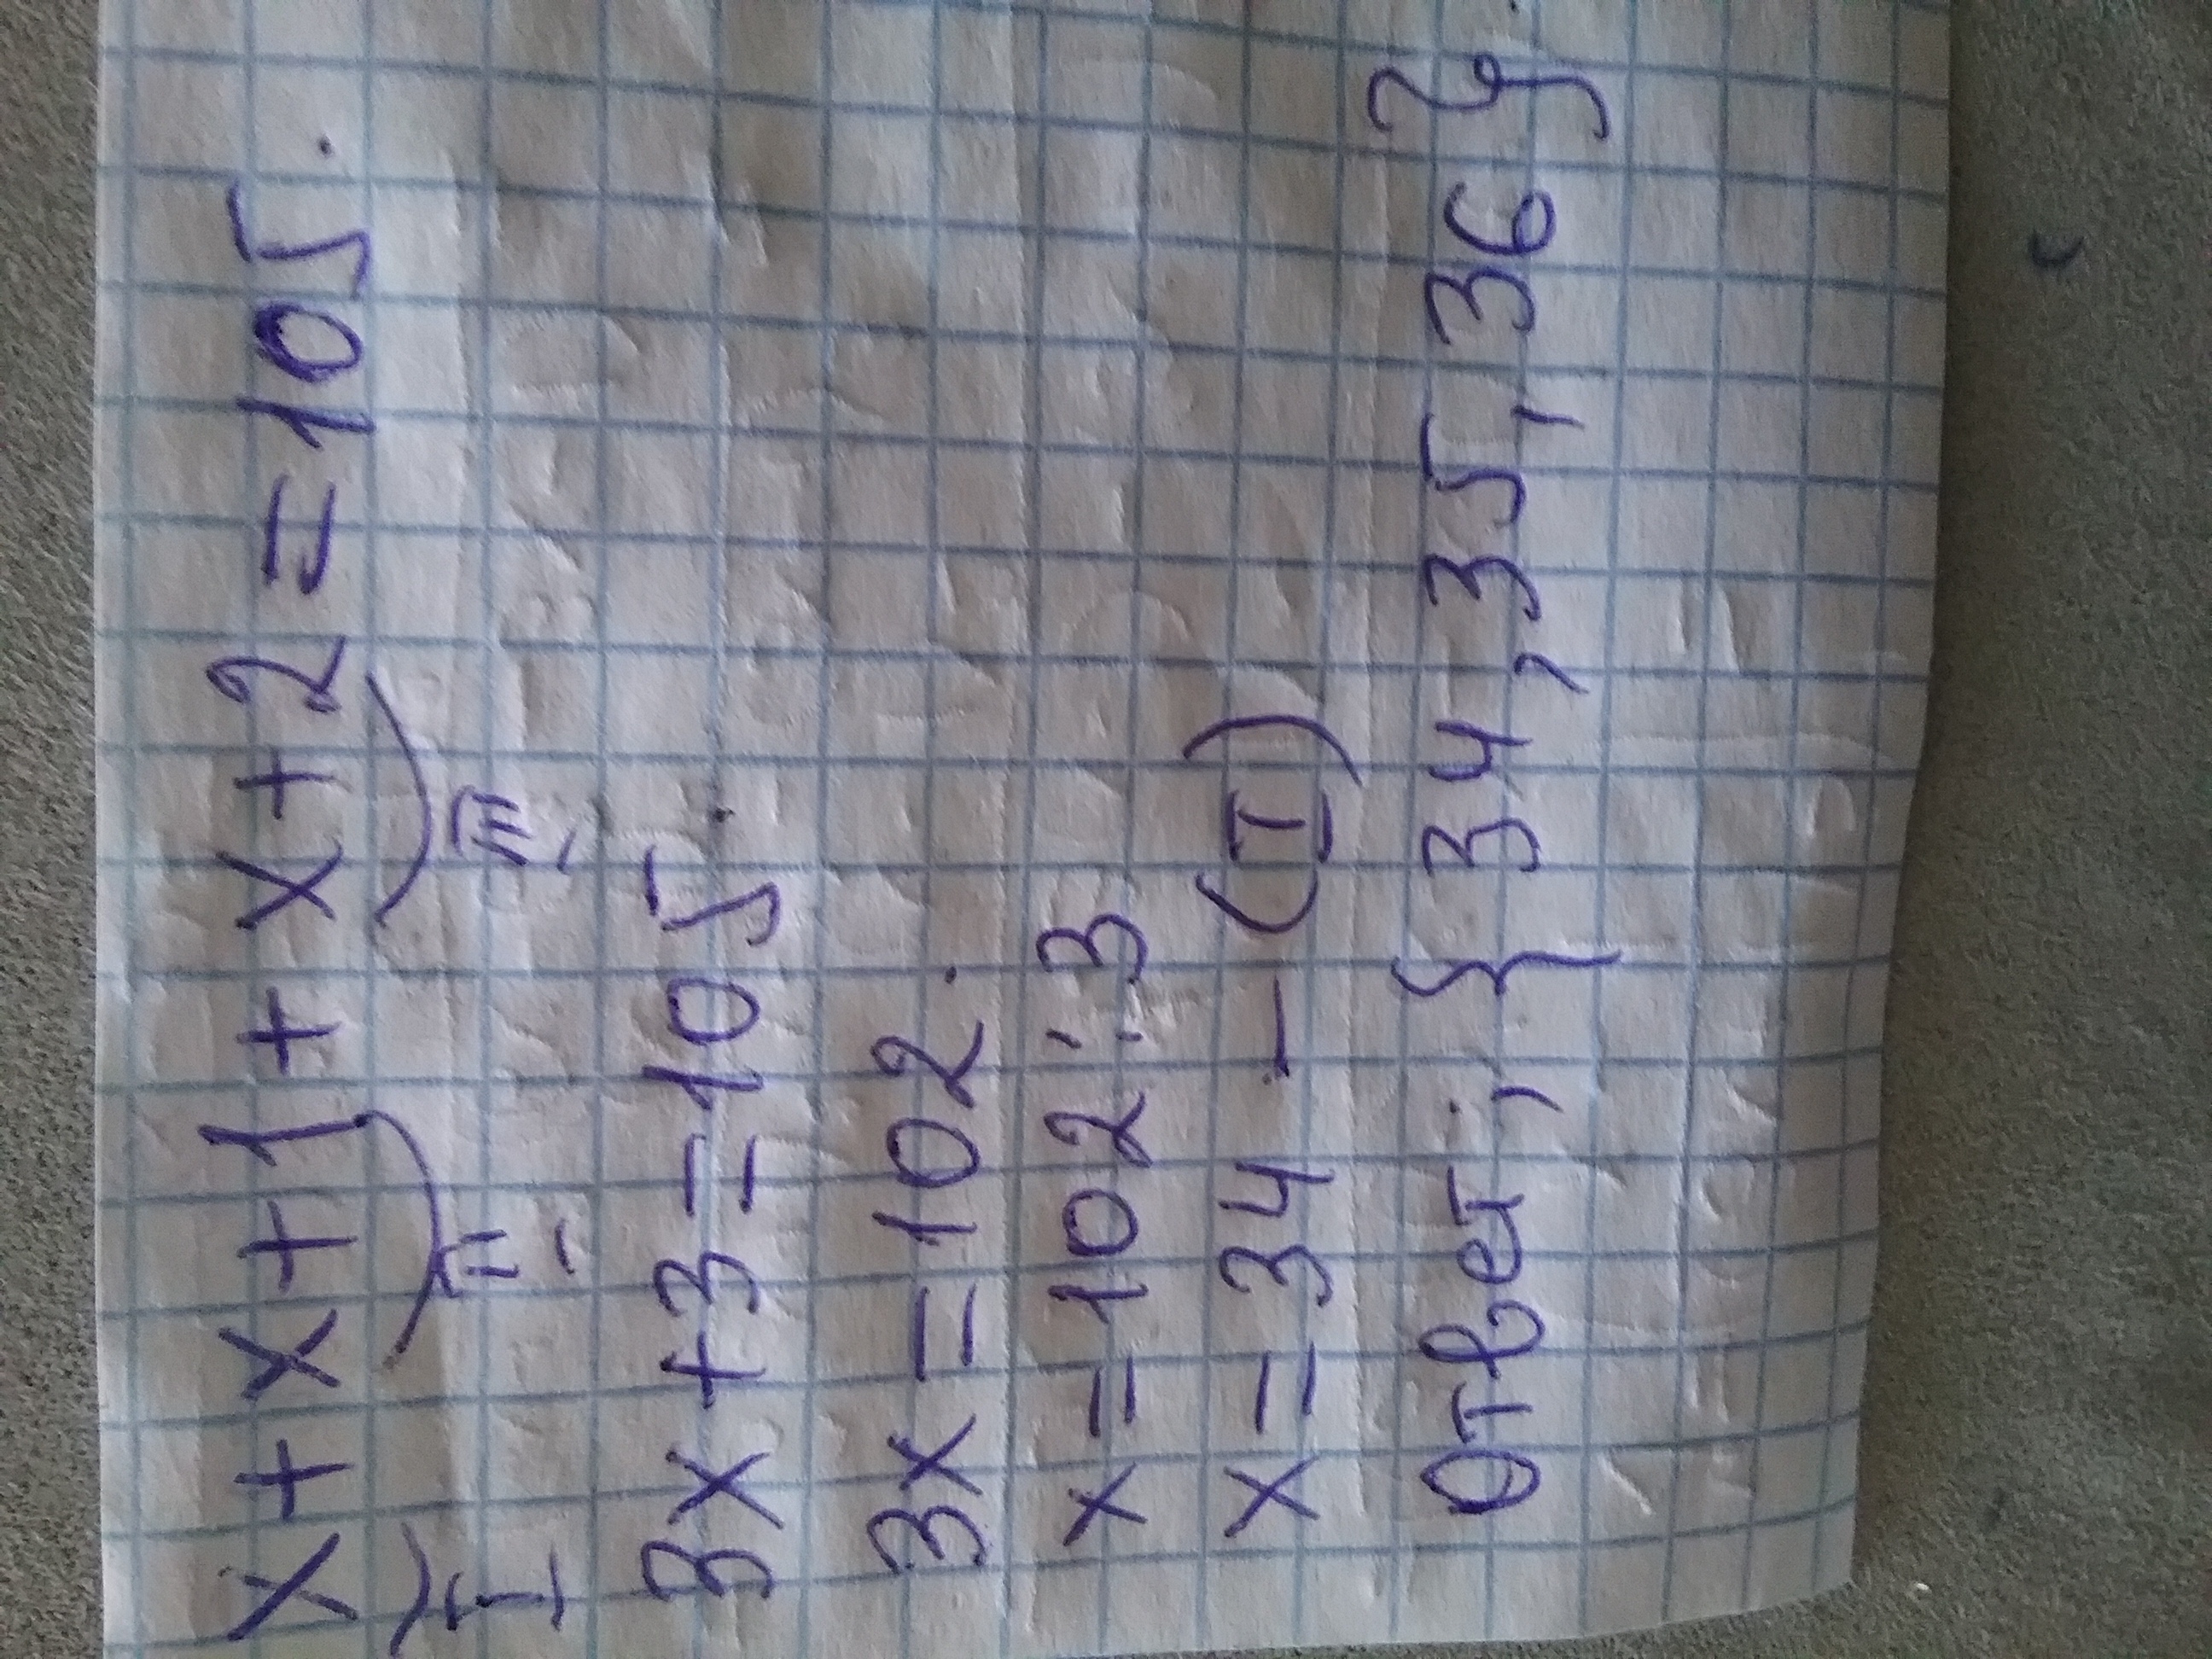 x + x + 1 + x + 2 = 105.
I II III
3x + 3 = 105.
3x = 102.
x = 102 : 3
x = 34 – (I)
Ответ: { 34, 35, 36 }